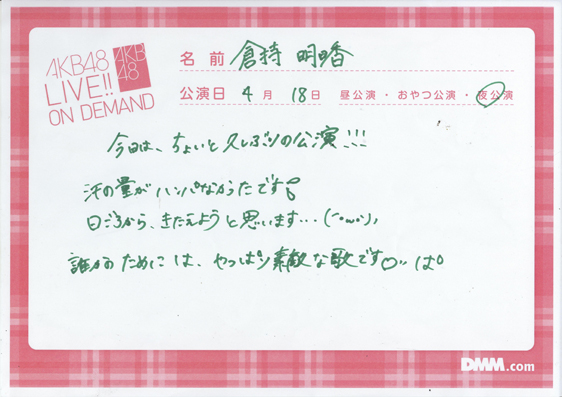 AKB48
LIVE!!
ON DEMAND
AKB
48
名前 倉持 明日香
公演日 4月 18日 昼公演・おやつ公演・夜公演
今日は、ちょいと久しぶりの公演!!!
汗の量がハンパなかったです!
日ごろから、きたえようと思います…(´・ω・`)
誰かのためには、やっぱり素敵な歌です
DMM.com